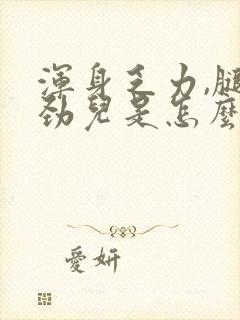 渾身乏力,腿
勁兒是怎麼
愛妍